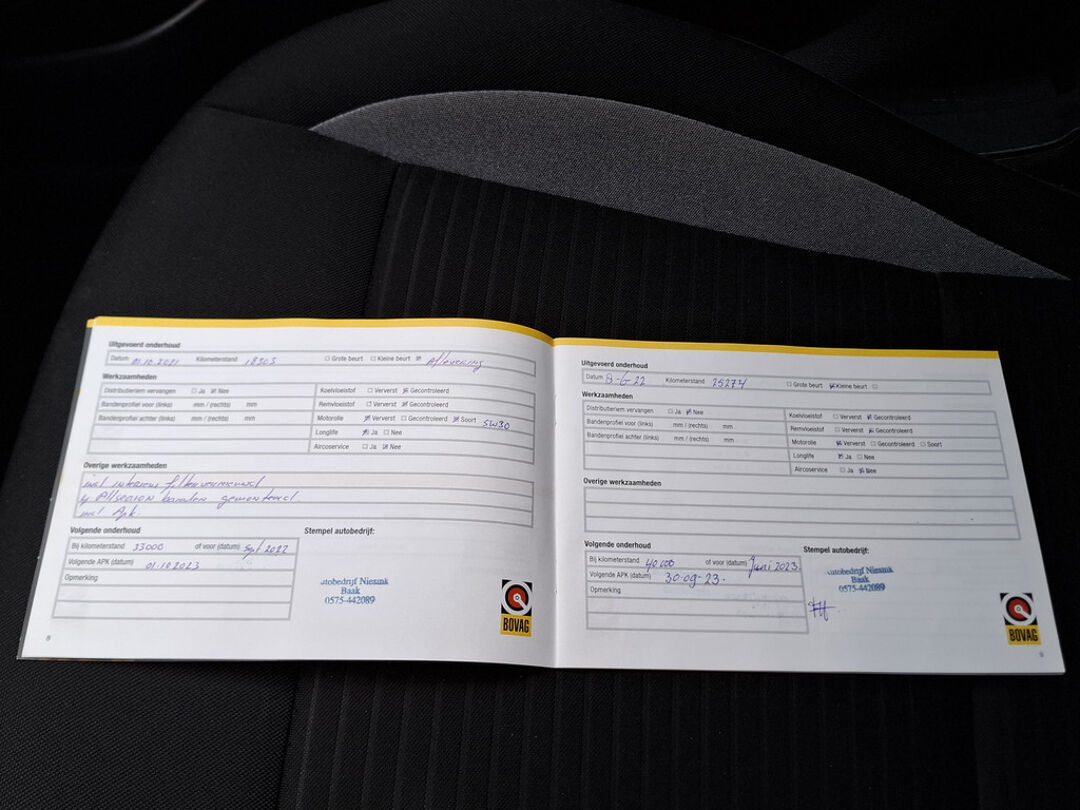 Uitgevoerd onderhoud
Datum 01.10.2021 Kilometerstand 18305 Grote beurt Kleine beurt Aflevering
Werkzaamheden
Distributieriem vervangen Ja Nee
Bandenprofiel voor (links) mm / (rechts) mm
Bandenprofiel achter (links) mm / (rechts) mm
Koelvloeistof Ververst Gecontroleerd
Remvloeistof Ververst Gecontroleerd
Motorolie Ververst Gecontroleerd Soort 5W30
Longlife Ja Nee
Aircoservice Ja Nee
Overige werkzaamheden
incl interieur filter
4 Allseason banden gemonteerd
incl Apk.
Volgende onderhoud
Bij kilometerstand 33000 of voor (datum) Sept 2022
Volgende APK (datum) 01.10.2023
Opmerking
Stempel autobedrijf:
utobedrijf Niesink
Baak
0575-442089
BOVAG
8
Uitgevoerd onderhoud
Datum 8-6-22 Kilometerstand 25274 Grote beurt Kleine beurt
Werkzaamheden
Distributieriem vervangen Ja Nee
Bandenprofiel voor (links) mm / (rechts) mm
Bandenprofiel achter (links) mm / (rechts) mm
Koelvloeistof Ververst Gecontroleerd
Remvloeistof Ververst Gecontroleerd
Motorolie Ververst Gecontroleerd Soort
Longlife Ja Nee
Aircoservice Ja Nee
Overige werkzaamheden
Volgende onderhoud
Bij kilometerstand 40000 of voor (datum) Juni 2023
Volgende APK (datum) 30-09-23.
Opmerking
Stempel autobedrijf:
utobedrijf Niesink
Baak
0575-442089
BOVAG
9